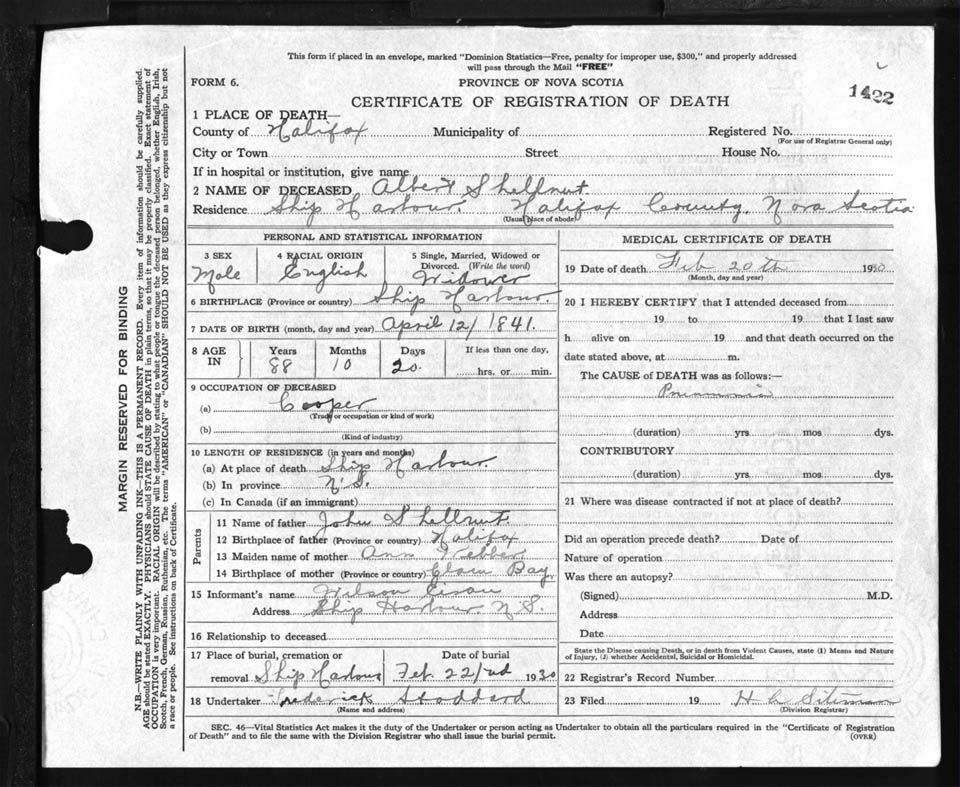 This form if placed in an envelope, marked "Dominion Statistics—Free, penalty for improper use, $300," and properly addressed
will pass through the Mail "FREE"
FORM 6.
PROVINCE OF NOVA SCOTIA
1422
CERTIFICATE OF REGISTRATION OF DEATH
1 PLACE OF DEATH—
County of Halifax Municipality of Registered No.
(For use of Registrar General only)
City or Town Street House No.
If in hospital or institution, give name
2 NAME OF DECEASED Albert Shellnut
Residence Ship Harbour. Halifax County, Nova Scotia
(Usual place of abode)
PERSONAL AND STATISTICAL INFORMATION
3 SEX 4 RACIAL ORIGIN 5 Single, Married, Widowed or
Divorced. (Write the word)
Male English Widower
6 BIRTHPLACE (Province or country) Ship Harbour.
7 DATE OF BIRTH (month, day and year) April 12/ 1841.
8 AGE IN Years Months Days If less than one day,
88 10 20. hrs. or min.
9 OCCUPATION OF DECEASED
(a) Cooper
(Trade or occupation or kind of work)
(b)
(Kind of industry)
10 LENGTH OF RESIDENCE (in years and months)
(a) At place of death Ship Harbour.
(b) In province N.S.
(c) In Canada (if an immigrant)
Parents
11 Name of father John Shellnut.
12 Birthplace of father (Province or country) Halifax
13 Maiden name of mother Ann Webber
14 Birthplace of mother (Province or country) Clam Bay
15 Informant's name Wilson
Address Ship Harbour. N.S.
16 Relationship to deceased
17 Place of burial, cremation or Date of burial
removal Ship Harbour Feb. 22/nd 1930
18 Undertaker Frederick Stoddard
(Name and address)
MEDICAL CERTIFICATE OF DEATH
19 Date of death Feb 20th 1930
(Month, day and year)
20 I HEREBY CERTIFY that I attended deceased from
19 to 19 that I last saw
h alive on 19 and that death occurred on the
date stated above, at m.
The CAUSE of DEATH was as follows:—
Pneumonia
(duration) yrs. mos dys.
CONTRIBUTORY
(duration) yrs. mos. dys.
21 Where was disease contracted if not at place of death?
Did an operation precede death? Date of
Nature of operation
Was there an autopsy?
(Signed) M.D.
Address
Date
State the Disease causing Death, or in death from Violent Causes, state (1) Means and Nature
of Injury, (2) whether Accidental, Suicidal or Homicidal.
22 Registrar's Record Number
23 Filed 19 H
(Division Registrar)
SEC. 46—Vital Statistics Act makes it the duty of the Undertaker or person acting as Undertaker to obtain all the particulars required in the "Certificate of Registration
of Death" and to file the same with the Division Registrar who shall issue the burial permit. (OVER)
MARGIN RESERVED FOR BINDING
N.B.—WRITE PLAINLY WITH UNFADING INK—THIS IS A PERMANENT RECORD. Every item of information should be carefully supplied.
AGE should be stated EXACTLY. PHYSICIANS should STATE CAUSE OF DEATH in plain terms, so that it may be properly classified. Exact statement of
OCCUPATION is very important. RACIAL ORIGIN will be described by stating to what people or tongue the deceased person belonged, whether English, Irish,
Scotch, French, German, Russian, Ruthenian, etc. The terms "AMERICAN" or "CANADIAN" SHOULD NOT BE USED as they express citizenship but not
a race or people. See instructions on back of Certificate.